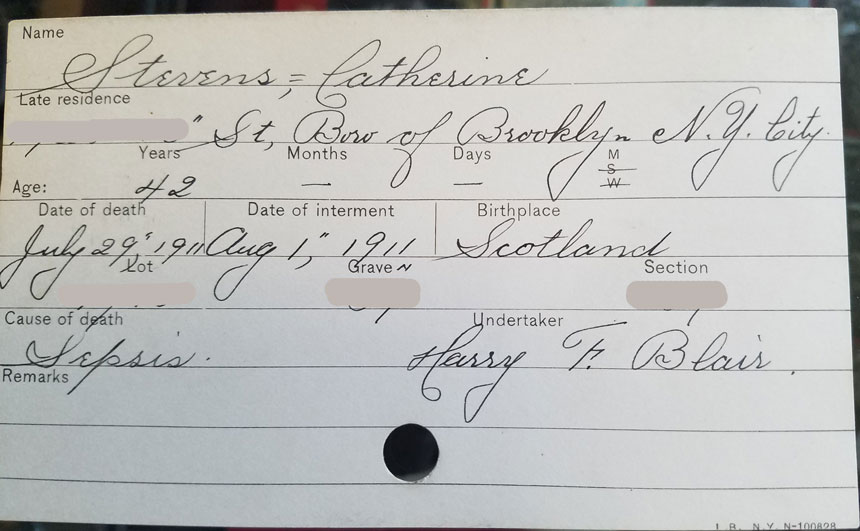 Name
Stevens, = Catherine
Late residence
" St, Boro of Brooklyn N.Y. City.
Years Months Days M
S
W
Age: 42 — —
Date of death Date of interment Birthplace
July 29" 1911 Aug 1," 1911 Scotland
Lot Grave Section
Cause of death Undertaker
Sepsis. Harry F. Blair.
Remarks
N.Y. N-100828